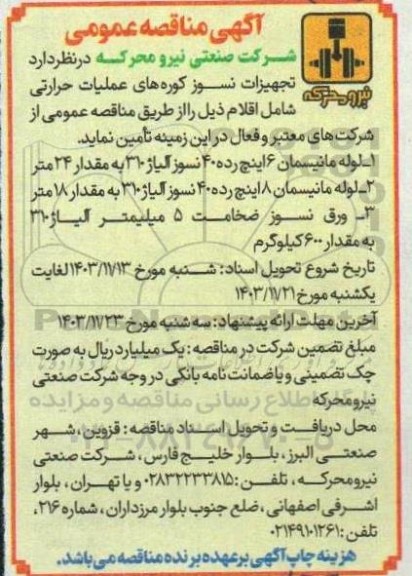 آگهی مناقصه عمومی
نیرو محرکه
شرکت صنعتی نیرو محرکه درنظردارد
تجهیزات نسوز کوره‌های عملیات حرارتی
شامل اقلام ذیل رااز طریق مناقصه عمومی از
شرکت‌های معتبر و فعال در این زمینه تأمین نماید.
۱ـ لوله مانیسمان ۶ اینچ رده ۴۰ نسوز آلیاژ ۳۱۰ به مقدار ۲۴ متر
۲ـ لوله مانیسمان ۸ اینچ رده ۴۰ نسوز آلیاژ ۳۱۰ به مقدار ۱۸ متر
۳ـ ورق نسوز ضخامت ۵ میلیمتر آلیاژ ۳۱۰
به مقدار ۶۰۰ کیلوگرم
تاریخ شروع تحویل اسناد: شنبه مورخ ۱۴۰۳/۱۱/۱۳ لغایت
یکشنبه مورخ ۱۴۰۳/۱۱/۲۱
آخرین مهلت ارائه پیشنهاد: سه شنبه مورخ ۱۴۰۳/۱۱/۲۳
مبلغ تضمین شرکت در مناقصه: یک میلیارد ریال به صورت
چک تضمینی و یا ضمانت نامه بانکی در وجه شرکت صنعتی
نیرومحرکه
محل دریافت و تحویل اسناد مناقصه: قزوین، شهر
صنعتی البرز، بلوار خلیج فارس، شرکت صنعتی
نیرومحرکه، تلفن: ۰۲۸۳۲۲۳۳۸۱۵ و یا تهران، بلوار
اشرفی اصفهانی، ضلع جنوب بلوار مرزداران، شماره ۲۱۶،
تلفن: ۰۲۱۴۹۱۰۱۲۶۱
هزینه چاپ آگهی بر عهده برنده مناقصه می‌باشد.